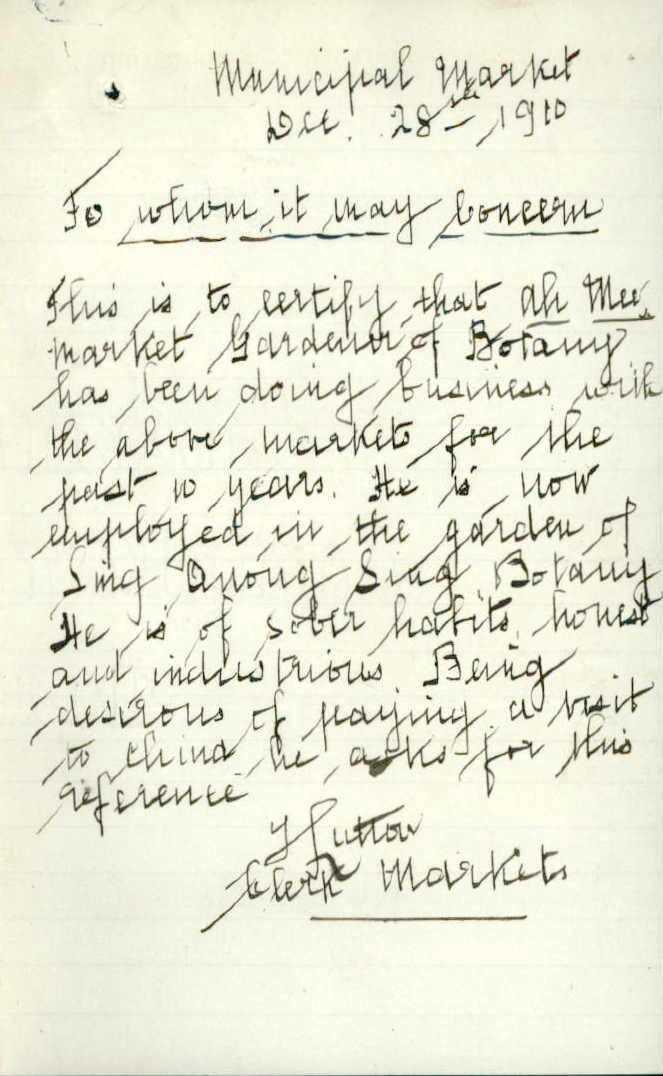 Municipal Market
Dec. 28th 1910
To whom it may Concern
This is to certify that Ah Mee
market Gardener of Botany
has been doing business with
the above markets for the
past 10 years. He is now
employed in the garden of
Sing Quong Sing Botany
He is of sober habits, honest
and industrious Being
desirous of paying a visit
to China he asks for this
reference
Clerk Markets